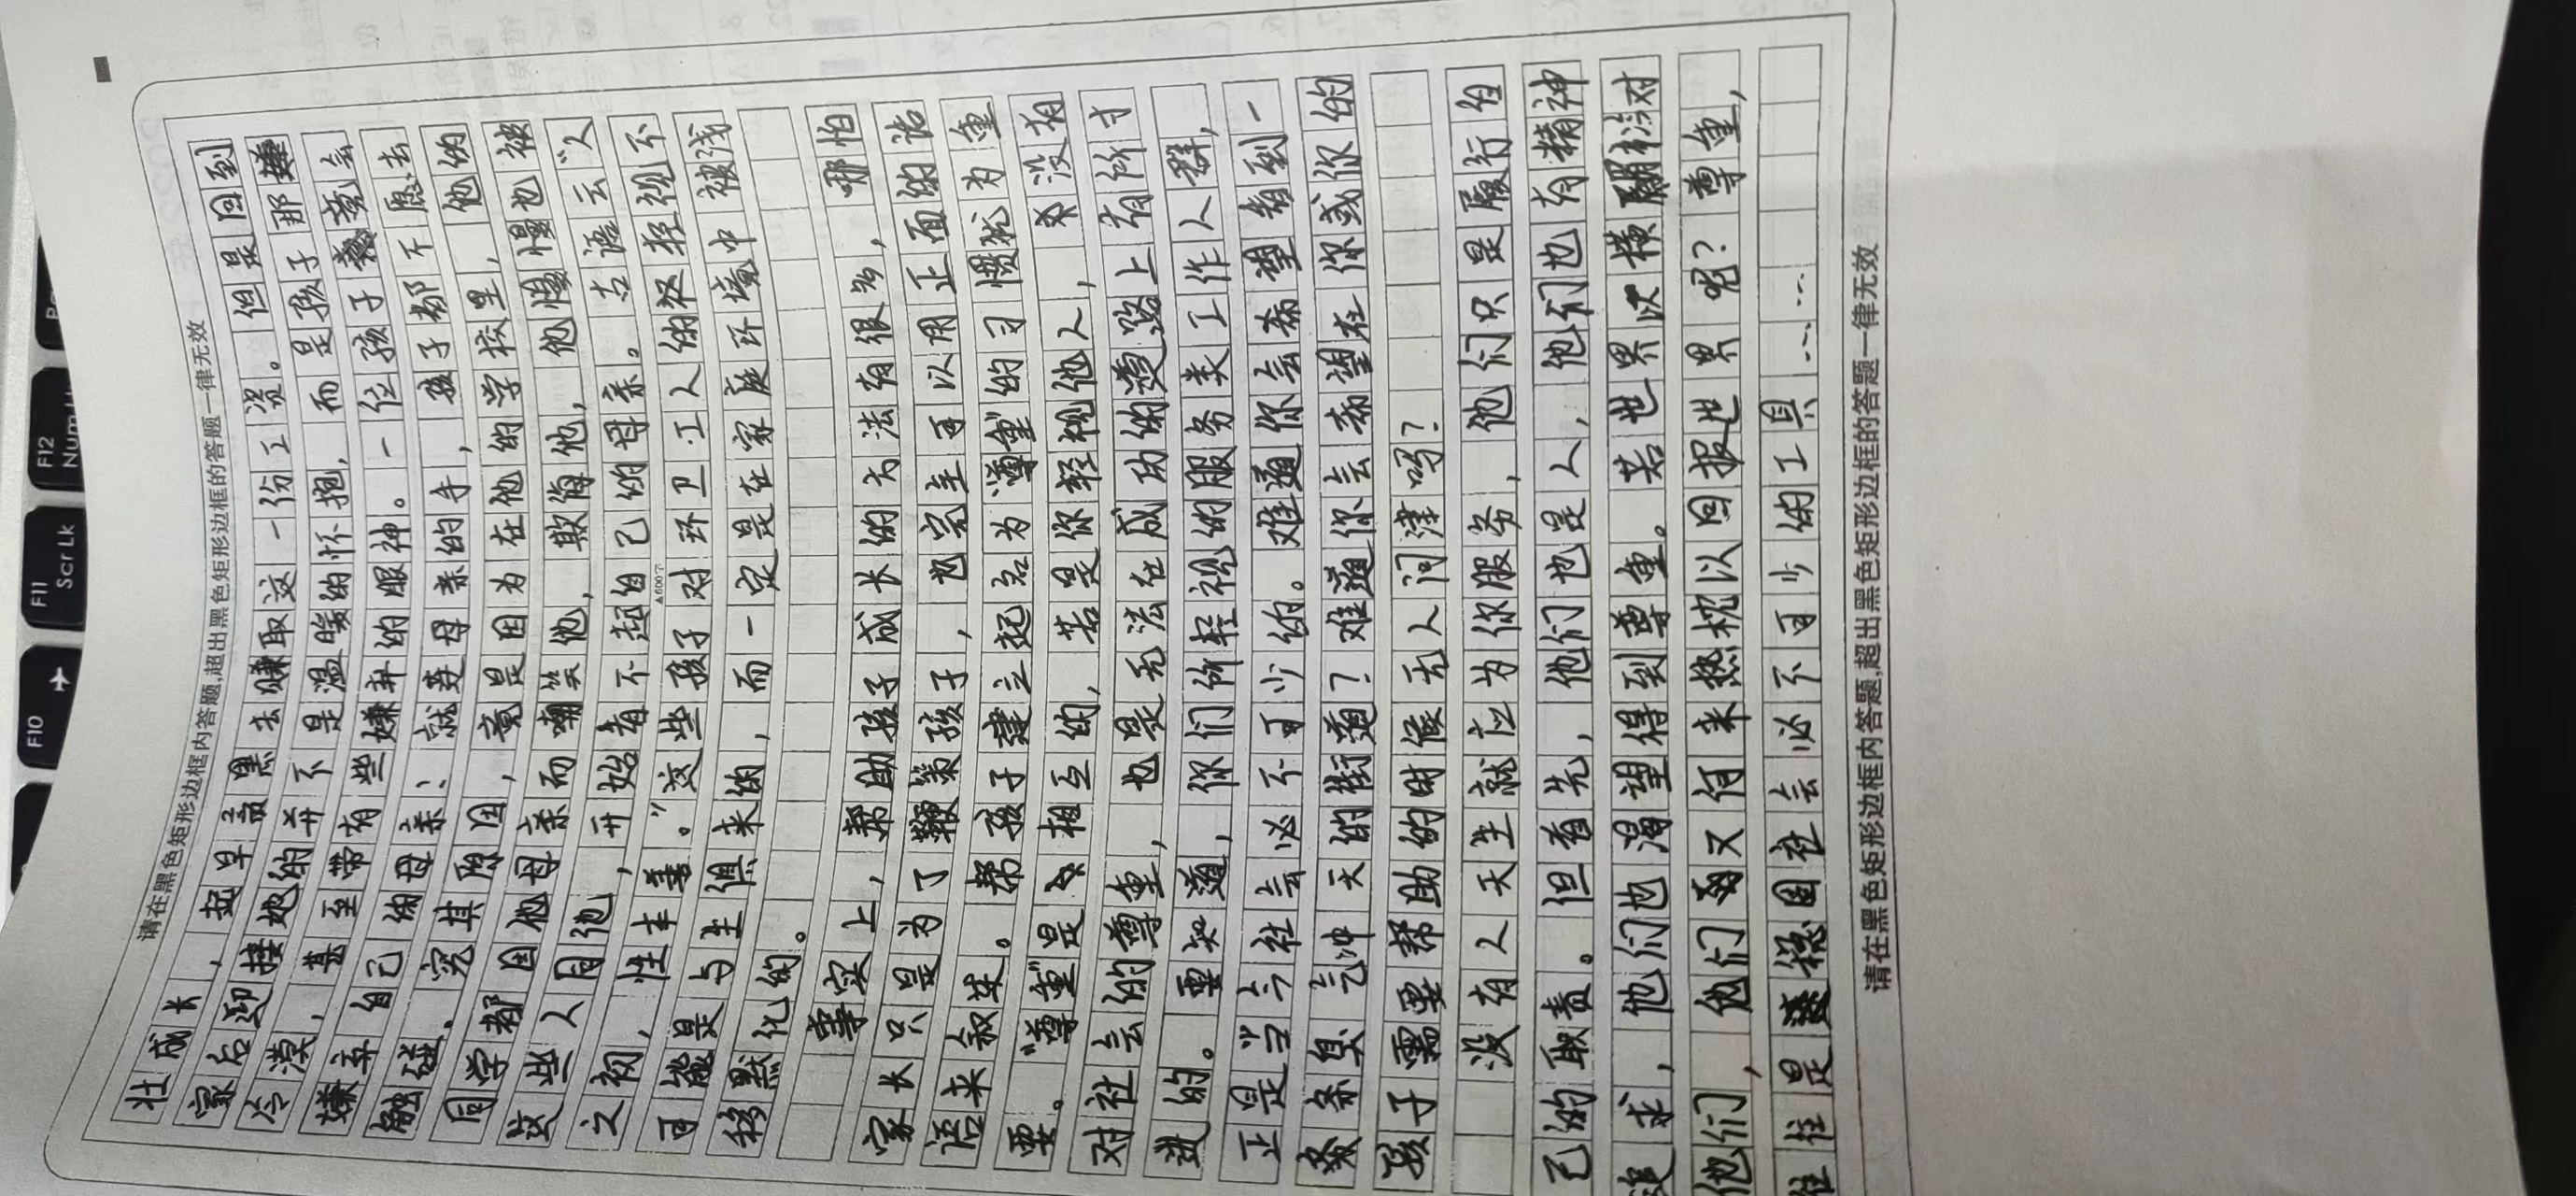 F10
F11
Scr Lk
F12
请在黑色矩形边框内答题,超出黑色矩形边框的答题一律无效
壮成长，起早贪黑去赚取这一份工资。但是回到
家后迎接她的并不是温暖的怀抱，而是孩子那
冷漠，甚至带有些嫌弃的眼神。一位孩子竟会
嫌弃自己的母亲！就连母亲的手，孩子都不愿去
触碰。究其原因，竟是因为在他的学校里，他的
同学都因他母亲而嘲笑他，欺侮他，他慢慢也被
这些人同化，开始看不起自己的母亲。古语云“人
▲600字
之初，性本善。”这些孩子对环卫工人的轻视不
可能是与生俱来的，而一定是在家庭环境中被浅
移默化的。
事实上，帮助孩子成长的方法有很多，哪怕
家长只是为了鞭策孩子，也完全可以用正面的话
语来叙述。帮孩子建立起名为“尊重”的习惯尤为重
要。“尊重”是相互的，若是你轻视他人，没有
对社会的尊重，也是无法在成功的道路上有所寸
进的。要知道，你们所轻视的服务类工作人群，
正是当今社会必不可少的。难道你会希望看到一
条臭气冲天的街道？难道你会希望在你或你的
孩子需要帮助的时候无人问津吗？
没有人天生就应为你服务，他们只是履行自
己的职责。但首先，他们也是人，他们也有精神
追求，他们也渴望得到尊重。若世界以横眉冷对
他们，他们又何来热忱以回报世界呢？尊重，
往往是稳固社会必不可少的工具……
请在黑色矩形边框内答题,超出黑色矩形边框的答题一律无效